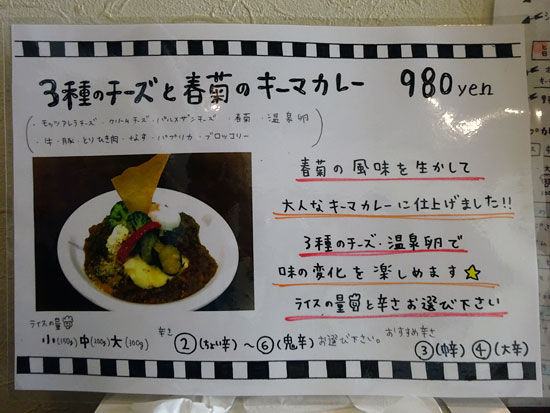 3種のチーズと春菊のキーマカレー 980yen
(・モッツァレラチーズ・クリームチーズ・パルメザンチーズ・春菊・温泉卵
・牛・豚・とりひき肉・なす・パプリカ・ブロッコリー)
春菊の風味を生かして
大人なキーマカレーに仕上げました!!
3種のチーズ・温泉卵で
味の変化を楽しめます☆
ライスの量と辛さお選び下さい
ライスの量
小(150g) 中(200g) 大(300g)
辛さ ②(ちょい辛)～⑥(鬼辛)お選び下さい。 おすすめ辛さ
③(中辛) ④(大辛)